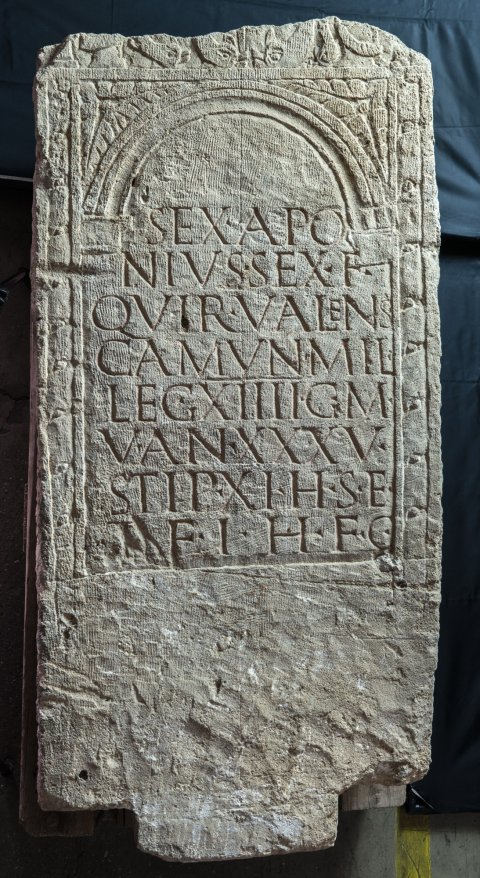 SEX·APO
NIVS·SEX·F·
QVIR·VALENS
CAMVN·MIL
LEG XIIII·G·M
VAN·XXXV·
STIP·XI·H·S·E
T·F·I·H·F·C